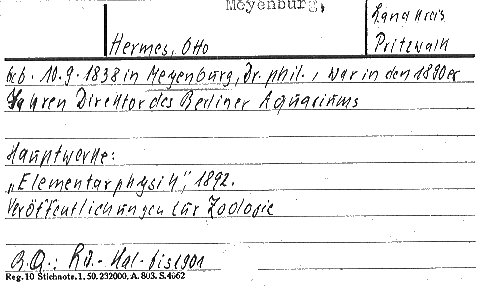 Meyenburg,
Landkreis
Hermes, Otto Pritzwalk
geb. 10.9.1838 in Meyenburg, Dr. phil., war in den 1890er
Jahren Direktor des Berliner Aquariums
Hauptwerke:
„Elementarphysik", 1892.
Veröffentlichungen zur Zoologie
B.Q.: Kü.- bis 1901
Reg. 10 Stichnote. 1. 50. 232000. A. 803. S. 4662